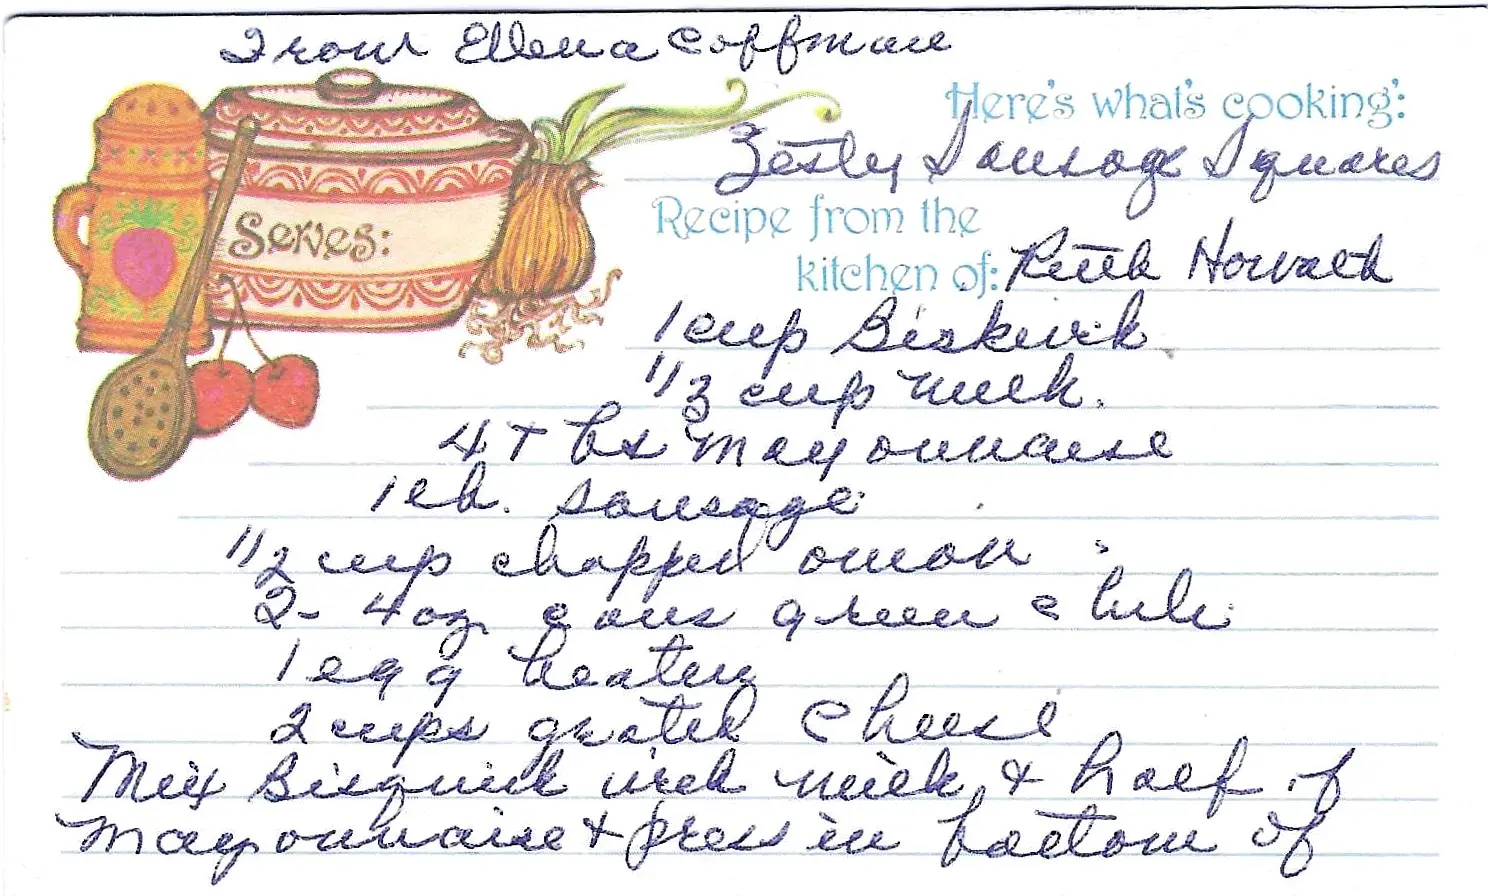 From Ellena Coffman
Here's what's cooking:
Zesty Sausage Squares
Serves:
Recipe from the
kitchen of: Ruth Horvath
1 cup Biskuick
1/3 cup milk.
4 T bs mayonnaise
1 lb. sausage
1/2 cup chopped onion
2- 4 oz cans green chili
1 egg beaten
2 cups grated cheese
Mix Bisquick with milk & half of
mayonnaise & press in bottom of